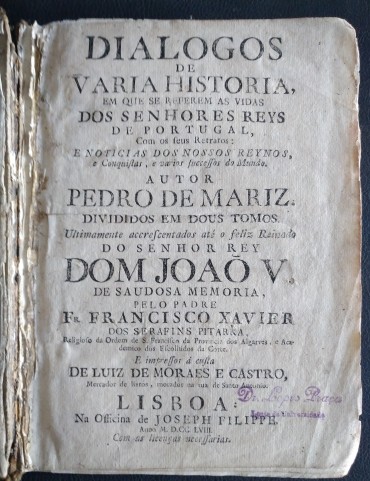 DIALOGOS
DE
VARIA HISTORIA,
EM QUE SE REFEREM AS VIDAS
DOS SENHORES REYS
DE PORTUGAL,
Com os seus Retratos:
E NOTICIAS DOS NOSSOS REYNOS,
e Conquistas, e varios successos do Mundo.
AUTOR
PEDRO DE MARIZ.
DIVIDIDOS EM DOUS TOMOS.
Ultimamente accrescentados até o feliz Reinado
DO SENHOR REY
DOM JOAÕ V.
DE SAUDOSA MEMORIA,
PELO PADRE
FR. FRANCISCO XAVIER
DOS SERAFINS PITARRA,
Religioso da Ordem de S. Francisco da Provincia dos Algarves, e Aca-
demico dos Escolhidos da Corte.
E impressos á custa
DE LUIZ DE MORAES E CASTRO,
Mercador de livros, morador na rua de Santo Antonio.
LISBOA:
Na Officina de JOSEPH FILIPPE.
Anno M. D.CC. LVIII.
Com as licenças necessarias.
Dr. Lopes Praça